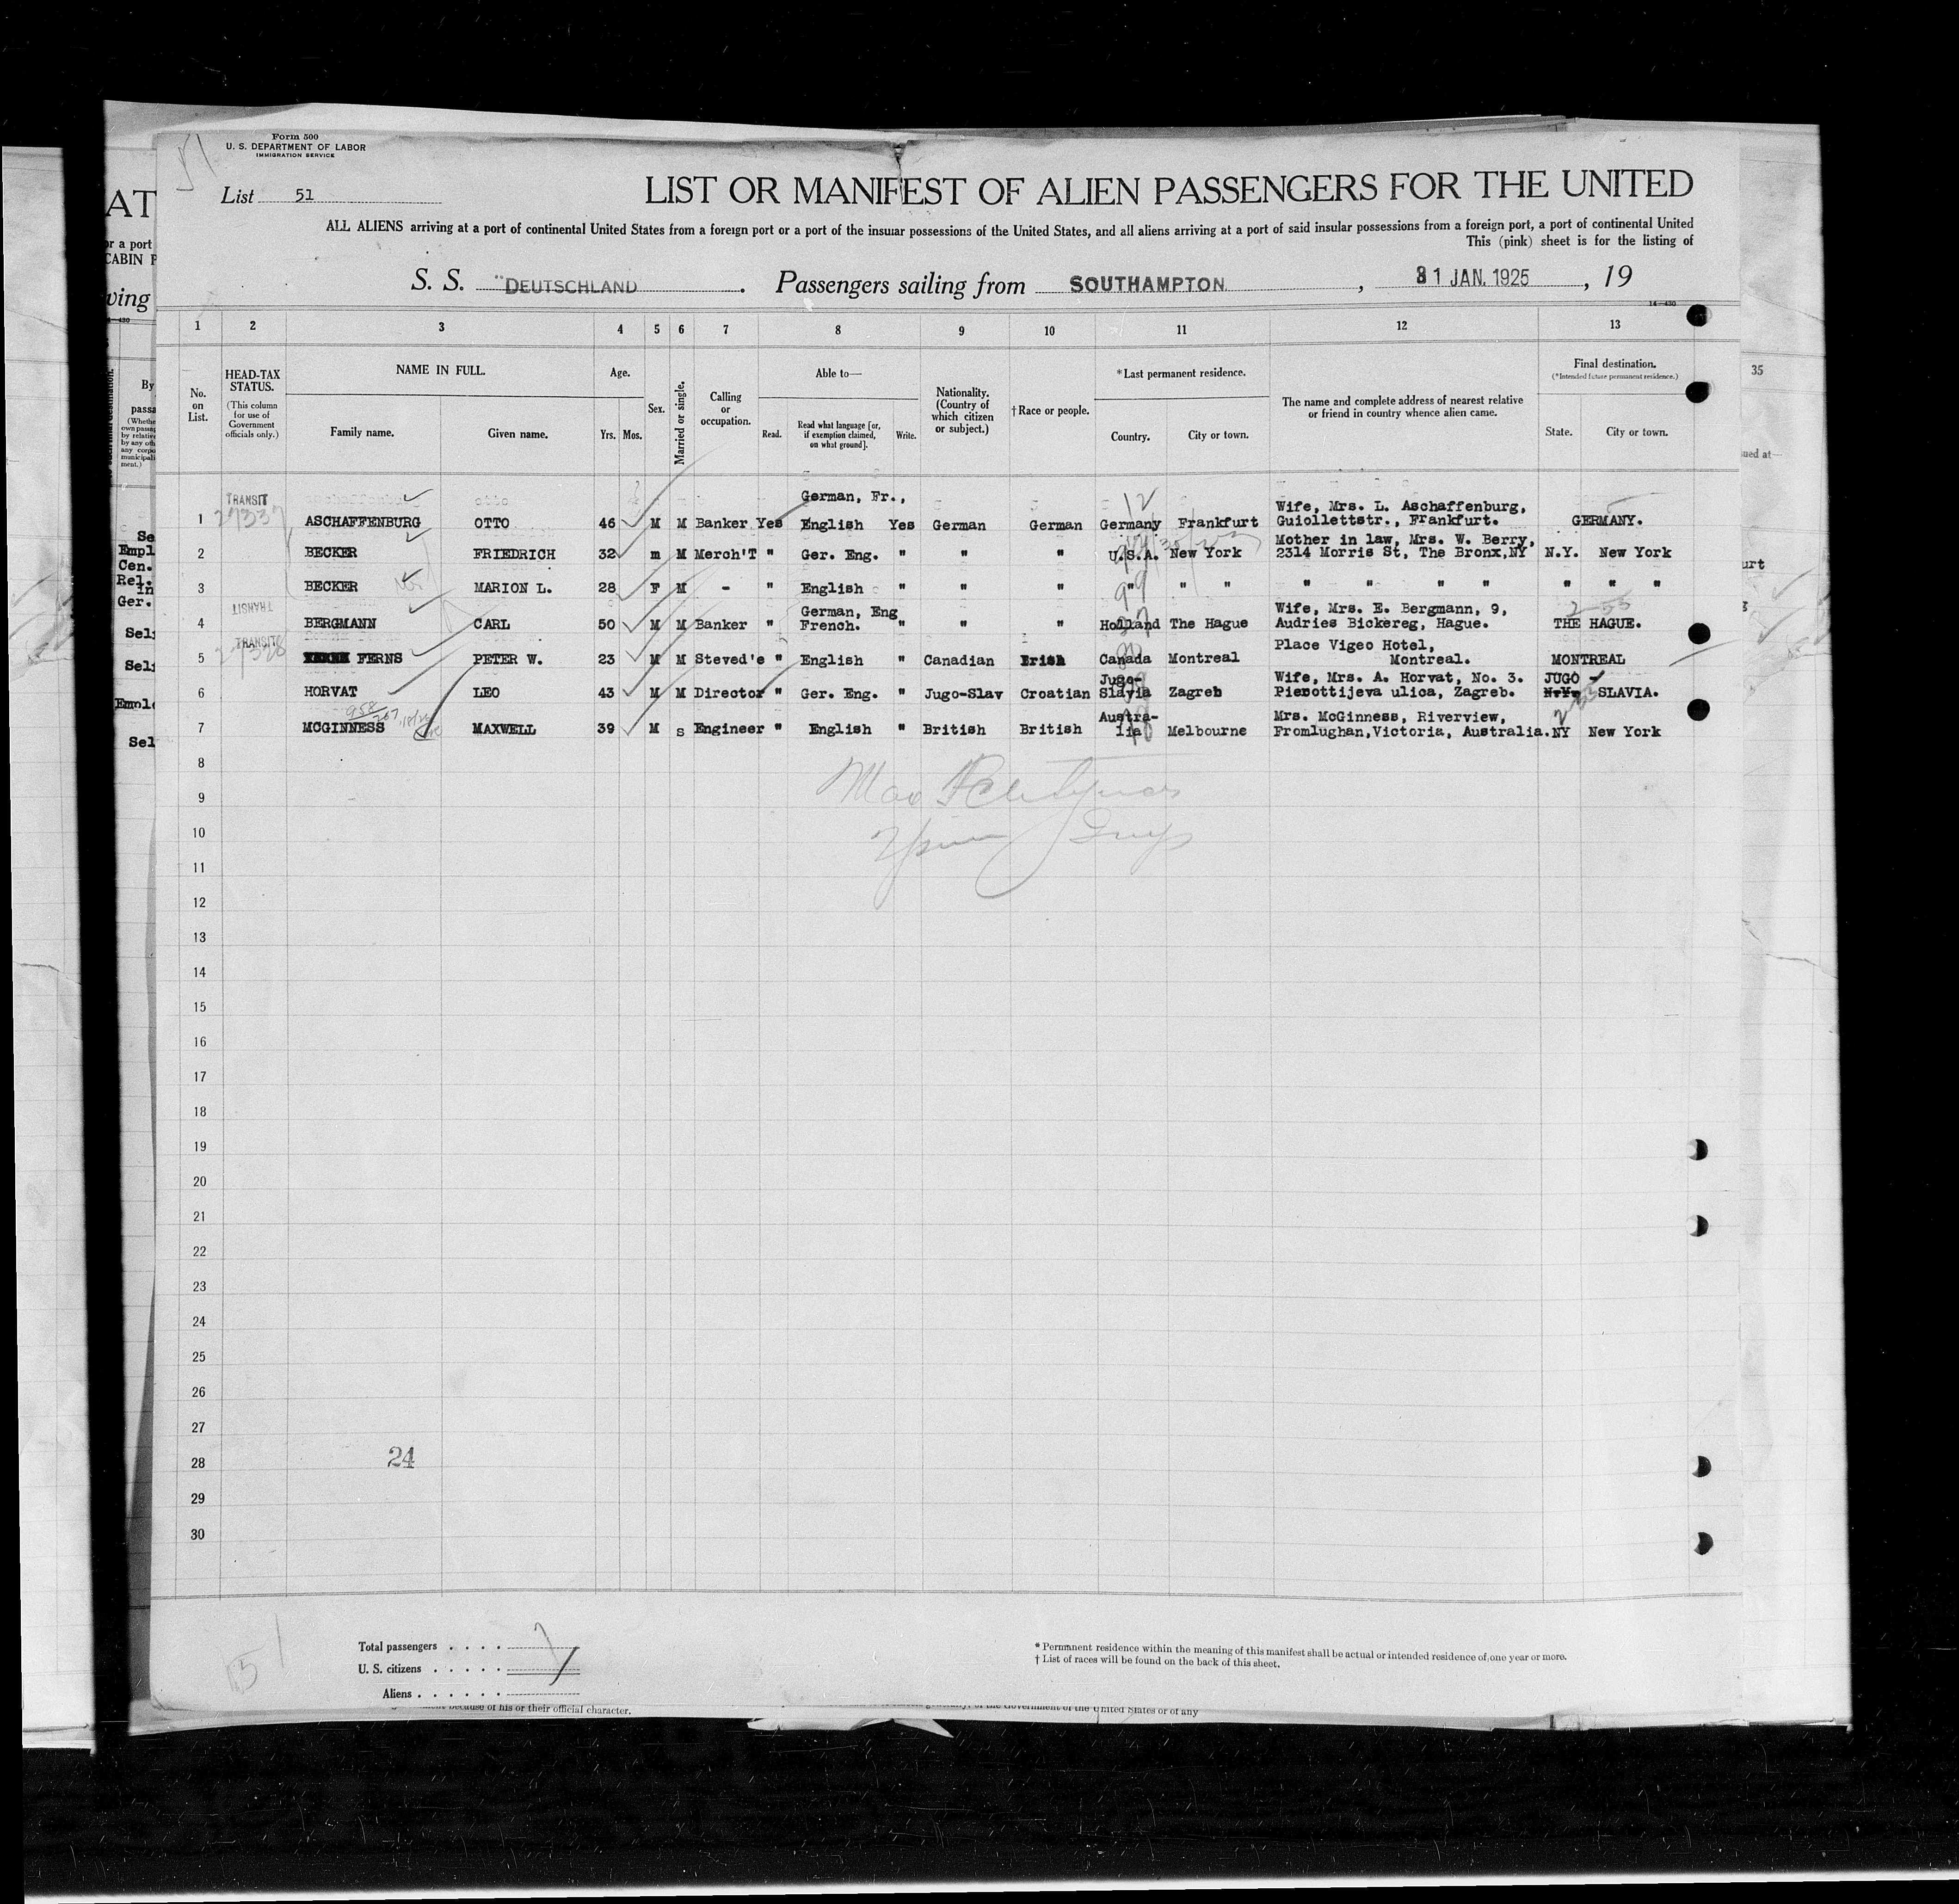 Form 500
U. S. DEPARTMENT OF LABOR
IMMIGRATION SERVICE
51
List 51
LIST OR MANIFEST OF ALIEN PASSENGERS FOR THE UNITED
ALL ALIENS arriving at a port of continental United States from a foreign port or a port of the insular possessions of the United States, and all aliens arriving at a port of said insular possessions from a foreign port, a port of continental United
This (pink) sheet is for the listing of
S. S. "DEUTSCHLAND . Passengers sailing from SOUTHAMPTON , 31 JAN. 1925 , 19
14—430
1 2 3 4 5 6 7 8 9 10 11 12 13
No. on List.
HEAD-TAX STATUS.
(This column for use of Government officials only.)
NAME IN FULL.
Family name. Given name.
Age.
Yrs. Mos.
Sex.
Married or single.
Calling or occupation.
Able to—
Read. Read what language [or, if exemption claimed, on what ground]. Write.
Nationality. (Country of which citizen or subject.)
†Race or people.
*Last permanent residence.
Country. City or town.
The name and complete address of nearest relative or friend in country whence alien came.
Final destination.
(*Intended future permanent residence.)
State. City or town.
TRANSIT German, Fr., 12 Wife, Mrs. L. Aschaffenburg,
1 ASCHAFFENBURG OTTO 46 M M Banker Yes English Yes German German Germany Frankfurt Guiollettstr., Frankfurt. GERMANY.
Mother in law, Mrs. W. Berry,
2 BECKER FRIEDRICH 32 m M Merch'T " Ger. Eng. " " " U.S.A. New York 2314 Morris St, The Bronx,NY N.Y. New York
3 BECKER MARION L. 28 F M - " English " " " " " " " " " " " " "
TRANSIT German, Eng Wife, Mrs. E. Bergmann, 9,
4 BERGMANN CARL 50 M M Banker " French. " " " Holland The Hague Audries Bickereg, Hague. THE HAGUE.
TRANSIT Place Vigeo Hotel,
5 FERNS PETER W. 23 M M Steved'e " English " Canadian Irish Canada Montreal Montreal. MONTREAL
Jugo- Wife, Mrs. A. Horvat, No. 3. JUGO -
6 HORVAT LEO 43 M M Director " Ger. Eng. " Jugo-Slav Croatian Slavia Zagreb Pierottijeva ulica, Zagreb. N.Y. SLAVIA.
Austra- Mrs. McGinness, Riverview,
7 MCGINNESS MAXWELL 39 M s Engineer " English " British British lia Melbourne Fromlughan,Victoria, Australia. NY New York
8
9
10
11
12
13
14
15
16
17
18
19
20
21
22
23
24
25
26
27
28 24
29
30
Total passengers . . . .
U. S. citizens . . . . .
Aliens . . . . . .
* Permanent residence within the meaning of this manifest shall be actual or intended residence of one year or more.
† List of races will be found on the back of this sheet.
because of his or their official character.
of the Government of the United States or of any
AT
or a port
CABIN P
ving
By
passa
Empl
Cen.
Rel.
in
Ger.
Sel
35
ued at—